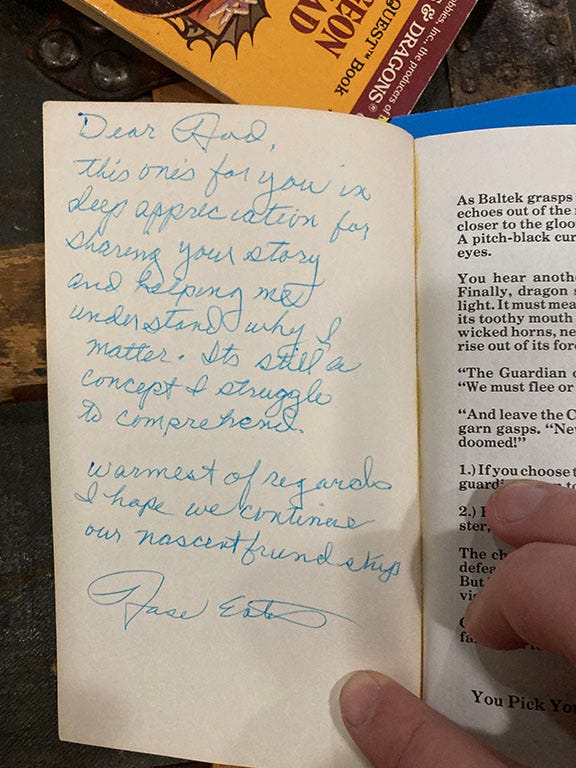 EON
AD
QUEST™ Book
& DRAGONS®
Inc., the producers of
Dear Rod,
this one's for you in
deep appreciation for
sharing your story
and helping me
understand why I
matter. Its still a
concept I struggle
to comprehend.
warmest of regards
I hope we continue
our nascent friendship
Rose Estes
As Baltek grasps
echoes out of the
closer to the
A pitch-black
eyes.
You hear
Finally, dragon
light. It must
its toothy mouth
wicked horns,
rise out of its
“The Guardian
“We must flee or
“And leave the
garn gasps.
doomed!”
1.) If you choose
2.)
The
But
You Pick